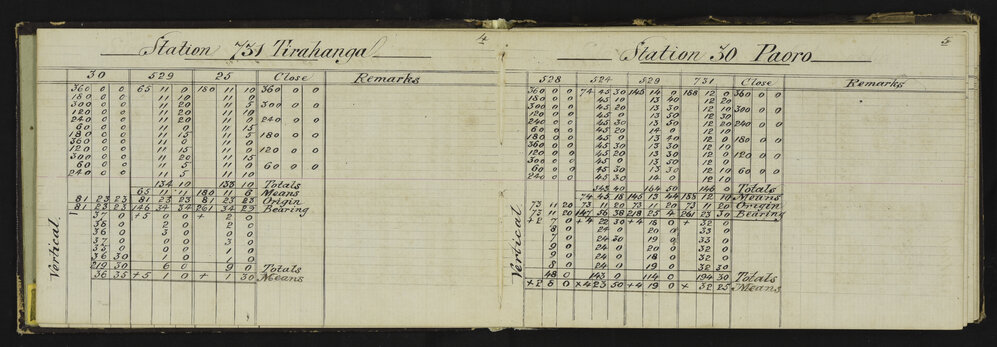 4
Station 731 Tirahanga
30 529 25 Close Remarks
360 0 0 65 11 0 180 11 10 360 0 0
180 0 0 11 10 11 10
300 0 0 11 20 11 5 300 0 0
120 0 0 11 20 11 10
240 0 0 11 20 11 10 240 0 0
60 0 0 11 0 11 15
180 0 0 11 15 11 5 180 0 0
360 0 0 11 0 11 10
120 0 0 11 15 11 10 120 0 0
300 0 0 11 20 11 15
60 0 0 11 5 11 0 60 0 0
240 0 0 11 5 11 10
134 10 Totals
65 11 11 180 11 6 Means
81 23 23 81 23 23 81 23 23 Origin
81 23 23 146 34 34 261 34 29 Bearing
Vertical
37 0 +5 0 0 + 2 0
36 0 2 0 2 0
36 0 3 0 0 0
37 0 0 0 3 0
35 0 0 0 1 0
36 30 1 0 1 0
219 30 6 0 9 0 Totals
36 35 +5 1 0 + 1 30 Means
5
Station 30 Paoro
528 524 529 731 Close Remarks
360 0 0 74 45 30 145 14 0 188 12 0 360 0 0
180 0 0 45 10 13 40 12 20
300 0 0 45 0 13 30 12 10 300 0 0
120 0 0 45 0 13 50 12 30
240 0 0 45 30 13 50 12 20 240 0 0
60 0 0 45 20 14 0 12 10
180 0 0 45 0 13 30 12 0 180 0 0
360 0 0 45 20 13 30 12 10
120 0 0 45 20 13 30 12 0 120 0 0
300 0 0 45 0 13 50 12 10
60 0 0 45 30 13 30 12 0 60 0 0
240 0 0 45 30 14 0 12 10
164 50 146 0 Totals
74 45 18 145 13 44 188 12 10 Means
73 11 20 73 11 20 73 11 20 73 11 20 Origin
73 11 20 147 56 38 218 25 4 261 23 30 Bearing
Vertical
+2 7 0 +4 22 30 +4 18 0 + 32 0
8 0 24 0 20 0 33 0
7 0 24 30 19 0 33 0
9 0 24 0 20 0 32 0
9 0 24 0 18 0 32 0
8 0 24 0 19 0 32 30
48 0 143 0 114 0 194 30 Totals
+2 8 0 +4 23 50 +4 19 0 + 32 25 Means